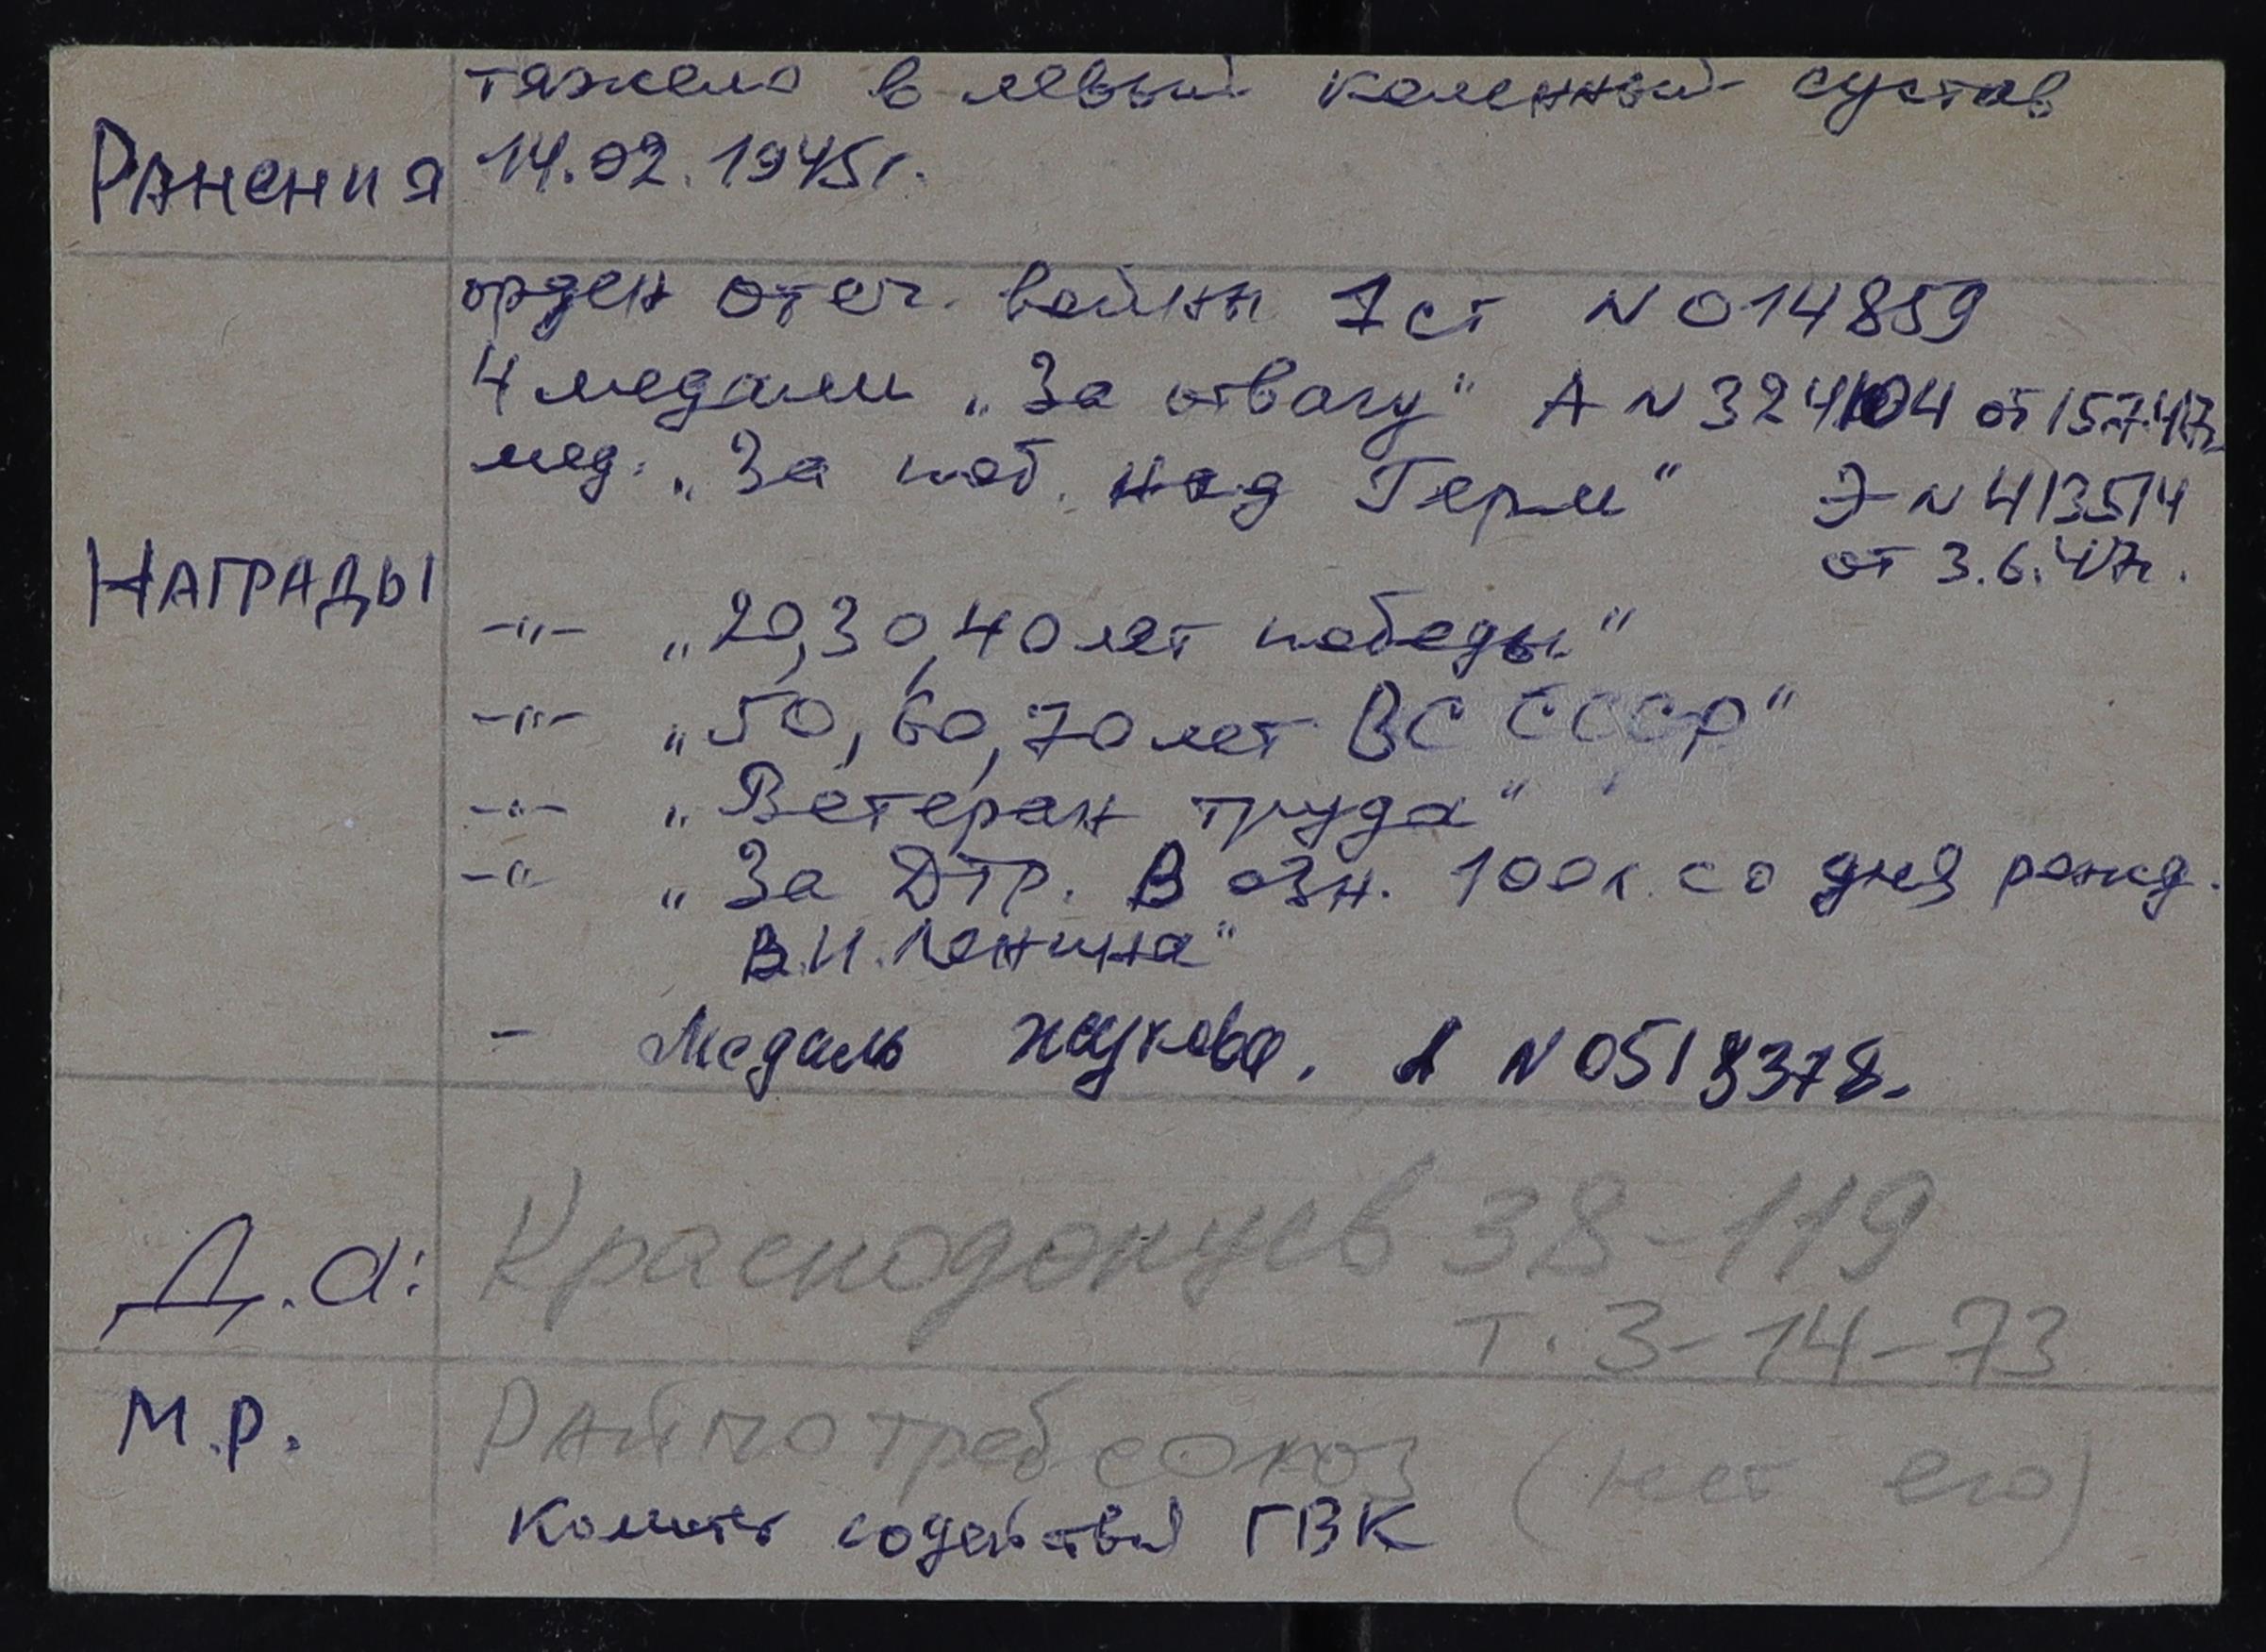 тяжело в левый коленный сустав
Ранения 14.02.1945г.
орден Отеч. войны 1 ст N 014859
4 медали „За отвагу" А N 324104 от 15.7.47г.
мед. „За поб. над Герм" Э N 413514
от 3.6.47г.
Награды
-"- „20, 30, 40 лет победы"
-"- „50, 60, 70 лет ВС СССР"
-"- „Ветеран труда"
-"- „За ДТР. В озн. 100 л. со дня рожд.
В.И. Ленина"
- Медаль Жукова. А N 0518378.
Д.а: Краснодонцев 38-119
т. 3-14-73
М.р. Райпотребсоюз (нет его)
Комитет содействия ГВК